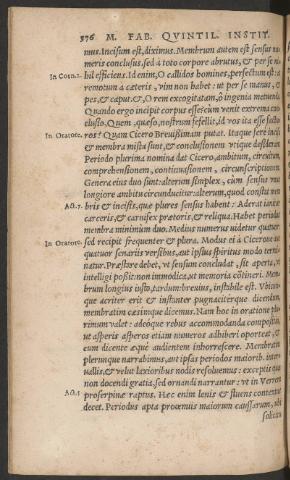 376 M. FAB. QVINTIL. INSTIT.
mus. Incisum est, diximus. Membrum autem est sensus nu-
meris conclusus, sed à toto corpore abrutus, & per se ni-
In Corn. 2.
hil efficiens. Id enim, O callidos homines, perfectum est: à
remotum à cæteris, vim non habet: ut per se manus, &
pes, & caput. &, O rem excogitatam, ô ingenia metuenda
Quando ergo incipit corpus esse? cùm venit extrema con-
clusio. Quem, quæso, nostrum fefellit, id vos ita esse factu-
In Oratore.
ros? Quam Cicero Breuissimam putat. Itaque ferè incisa
& membra mista sunt, & conclusionem utique desiderant.
Periodo plurima nomina dat Cicero, ambitum, circuitum,
comprehensionem, continuationem, circunscriptionem.
Genera eius duo sunt: alterum simplex, cùm sensus unus
longiore ambitu circunducitur: alterum, quod constat mem-
Act. 7.
bris & incisis, quæ plures sensus habent: Aderat ianitor
carceris, & carnifex prætoris, & reliqua. Habet periodus
membra minimùm duo. Medius numerus uidetur quatuor:
In Oratore.
sed recipit frequenter & plura. Modus ei à Cicerone aut
quatuor senariis versibus, aut ipsius spiritus modo termi-
natur. Præstare debet, vt sensum concludat, sit aperta, vt
intelligi possit: non immodica, vt memoria cõtineri. Mem-
brum longius iusto, tardum: breuius, instabile est. Vbicun-
que acriter erit & instanter pugnaciterque dicendum,
membratim cæsimque dicemus. Nam hoc in oratione plu-
rimum valet: adeóque rebus accommodanda compositio,
vt asperis asperos etiam numeros adhiberi oporteat, &
cum dicente æquè audientem inhorrescere. Membratim
plerunque narrabimus, aut ipsas periodos maioribus inter-
uallis, & velut laxioribus nodis resoluemus: exceptis quæ
non docendi gratia, sed ornandi narrantur: vt in Verrem
Act. 6.
proserpinæ raptus. Hæc enim lenis & fluens contextus
decet. Periodus apta proœmiis maiorum causarum, ubi
solicitu-